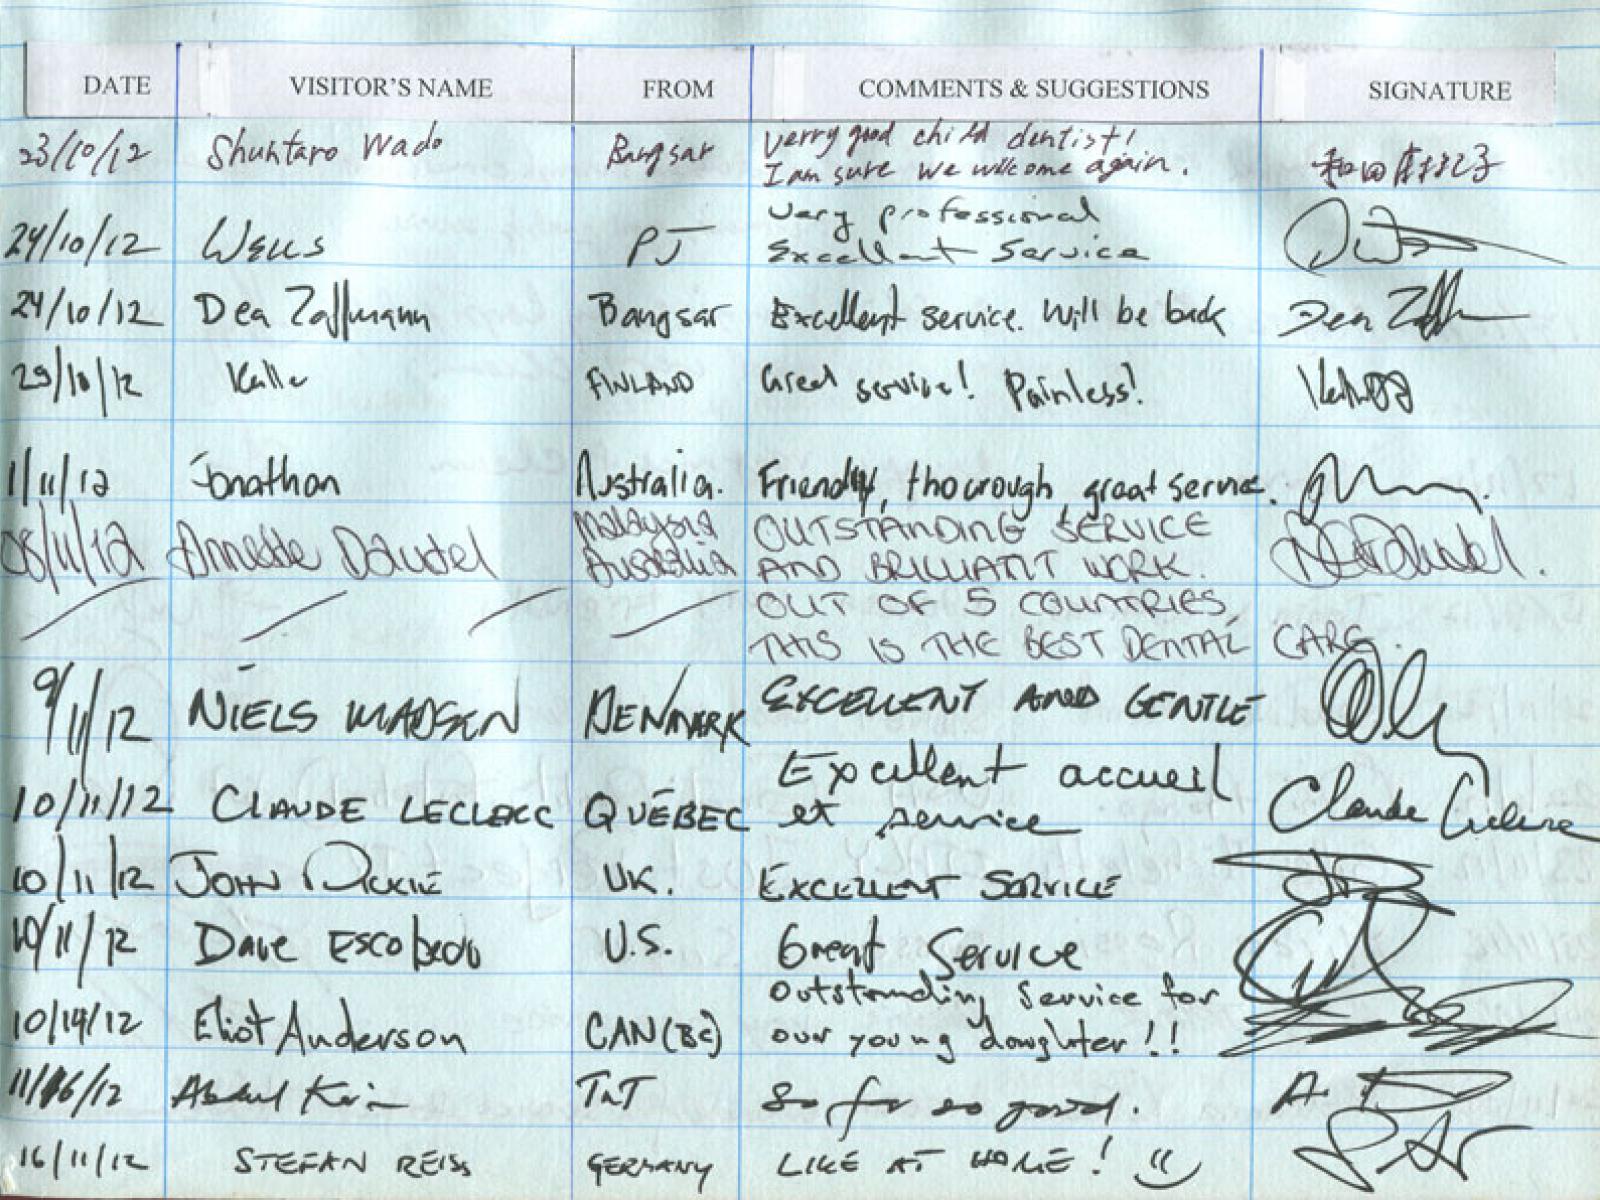 DATE VISITOR'S NAME FROM COMMENTS & SUGGESTIONS SIGNATURE
23/10/12 Shuntaro Wado Bangsar Verry good child dentist!
I am sure we will come again.
和田
24/10/12 Wells PJ Very professional
Excellent Service
24/10/12 Dea Zaffmann Bangsar Excellent service. Will be back Dea
29/10/12 Kalle FINLAND Great service! Painless!
1/11/12 Jonathan Australia. Friendly, thourough, great service.
08/11/12 Annette Daudel Malaysia
Australia OUTSTANDING SERVICE
AND BRILLIANT WORK.
OUT OF 5 COUNTRIES
THIS IS THE BEST DENTAL CARE.
9/11/12 NIELS MADSEN DENMARK EXCELLENT AND GENTLE
10/11/12 CLAUDE LECLERC QUÉBEC Excellent accueil
et service Claude
10/11/12 JOHN DICKIE UK. EXCELLENT SERVICE
10/11/12 Dave Escobedo U.S. Great Service
10/14/12 Eliot Anderson CAN (BC) Outstanding service for
our young daughter!!
11/16/12 Abdul Karim TnT So far so good.
16/11/12 STEFAN REISS GERMANY LIKE AT HOME!